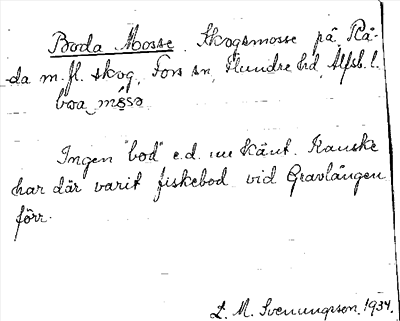 Boda Mosse. Skogsmosse på Rå-
da m. fl. skog, Fors sn, Flundre hd, Älfsb. l.
boa måsa
Ingen "bod" e.d. nu känt. Kanske
har där varit fiskebod vid Gravlången
förr.
L. M. Svenungsson, 1934.